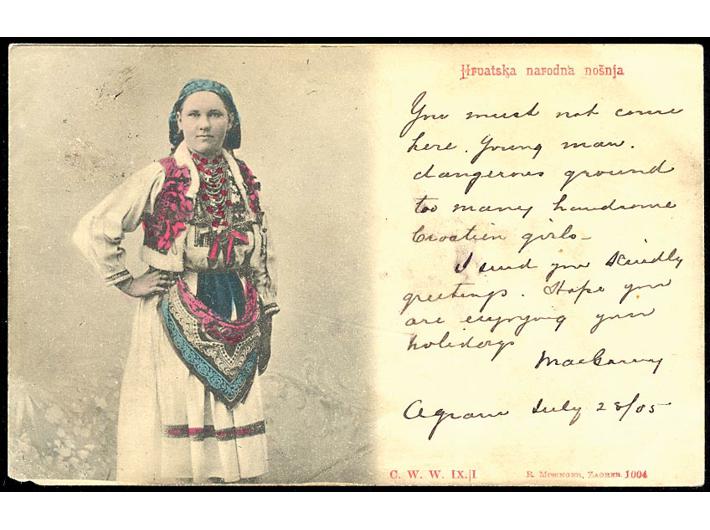 Hrvatska narodna nošnja
You must not come
here. Young man.
dangerous ground
too many handsome
Croatien girls_
I send you kindly
greetings. Hope you
are enjoying your
holidays
Agram July 28/05
C. W. W. IX. I
R. Mosinger, Zagreb. 1004